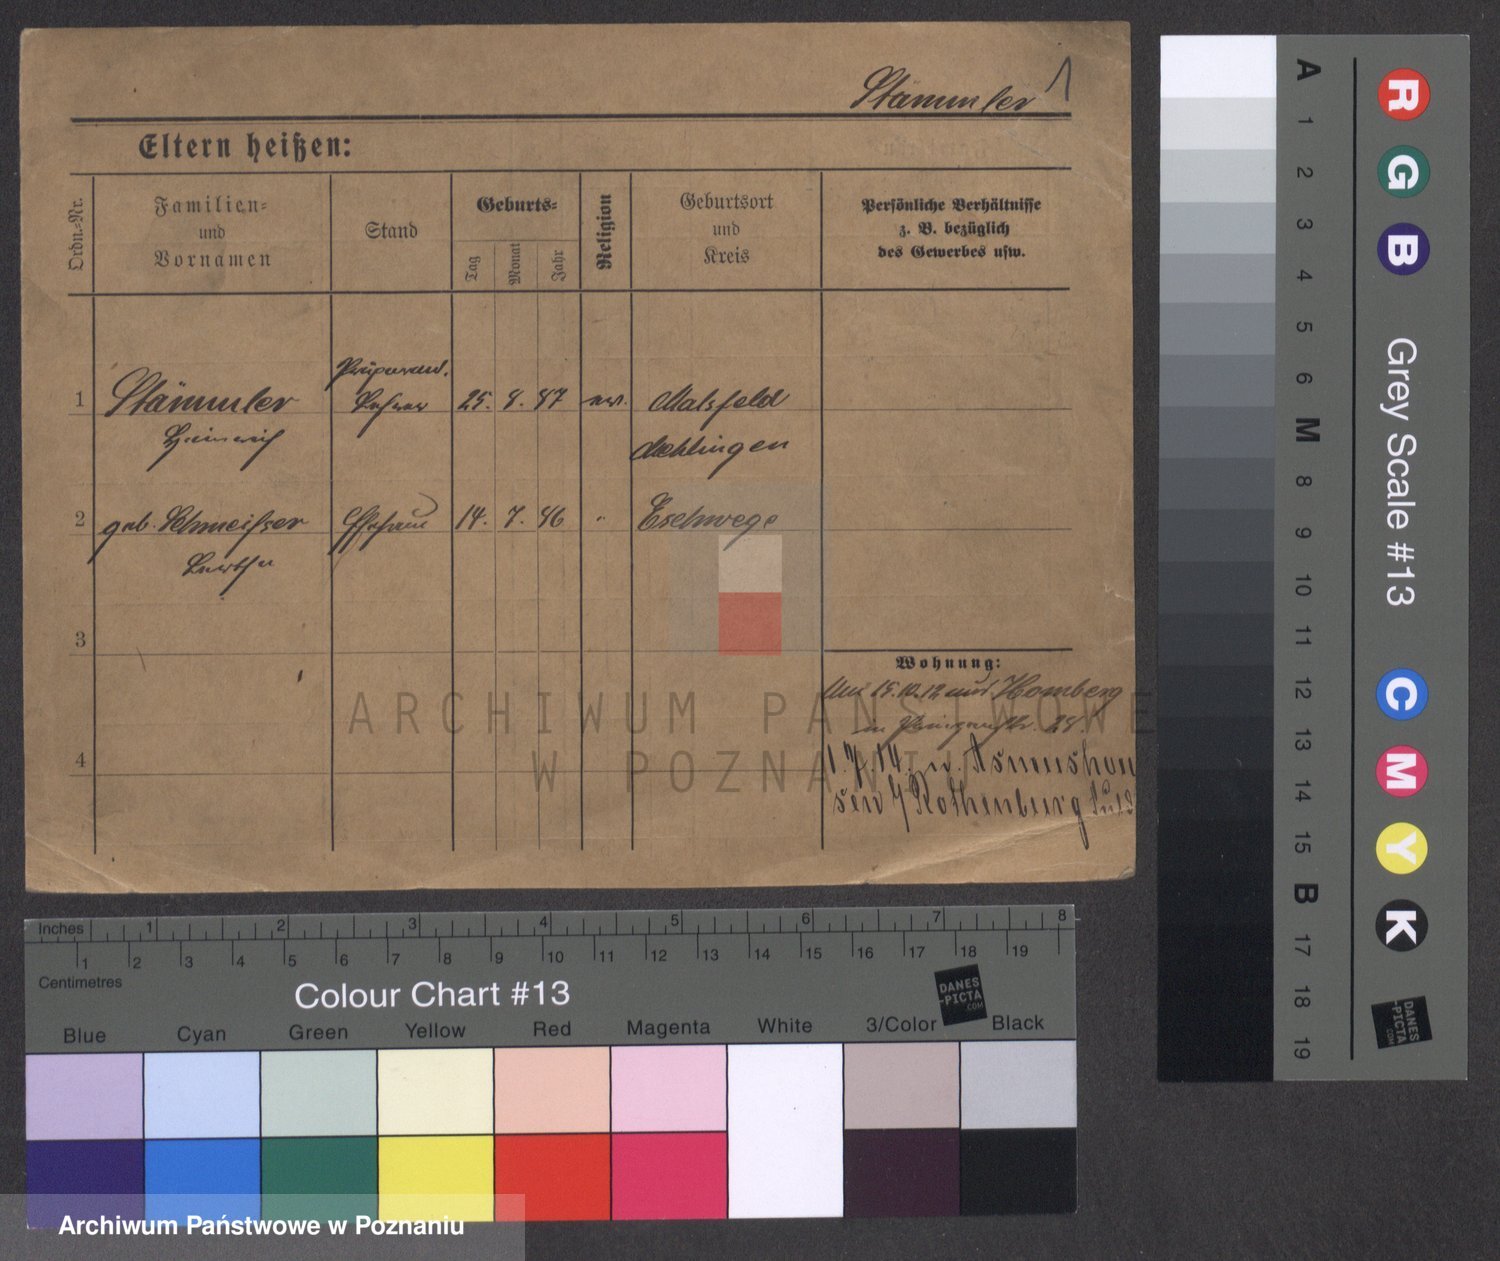 Stämmler 1
Eltern heißen:
Ordn.-Nr.
Familien-
und
Vornamen
Stand
Geburts-
Tag
Monat
Jahr
Religion
Geburtsort
und
Kreis
Persönliche Verhältnisse
z. B. bezüglich
des Gewerbes usw.
Präparand.
1 Stämmler Lehrer 25. 8. 87 ev. Malsfeld
Heinrich Melsungen
2 geb. Schmeißer Ehefrau 14. 7. 86 " Eschwege
Bertha
3
Wohnung:
15.10.12 aus Homberg
in 28.
4
1.7.14. Asmushau
sen / Rothenburg Fulda
ARCHIWUM PAŃSTWOWE
W POZNANIU
A 1 2 3 4 5 6 M 8 9 10 11 12 13 14 15 B 17 18 19
R G B Grey Scale #13 C M Y K
DANES
-PICTA
.COM
Inches 1 2 3 4 5 6 7 8
1 2 3 4 5 6 7 8 9 10 11 12 13 14 15 16 17 18 19
Centimetres
Colour Chart #13
DANES
-PICTA
.COM
Blue Cyan Green Yellow Red Magenta White 3/Color Black
Archiwum Państwowe w Poznaniu